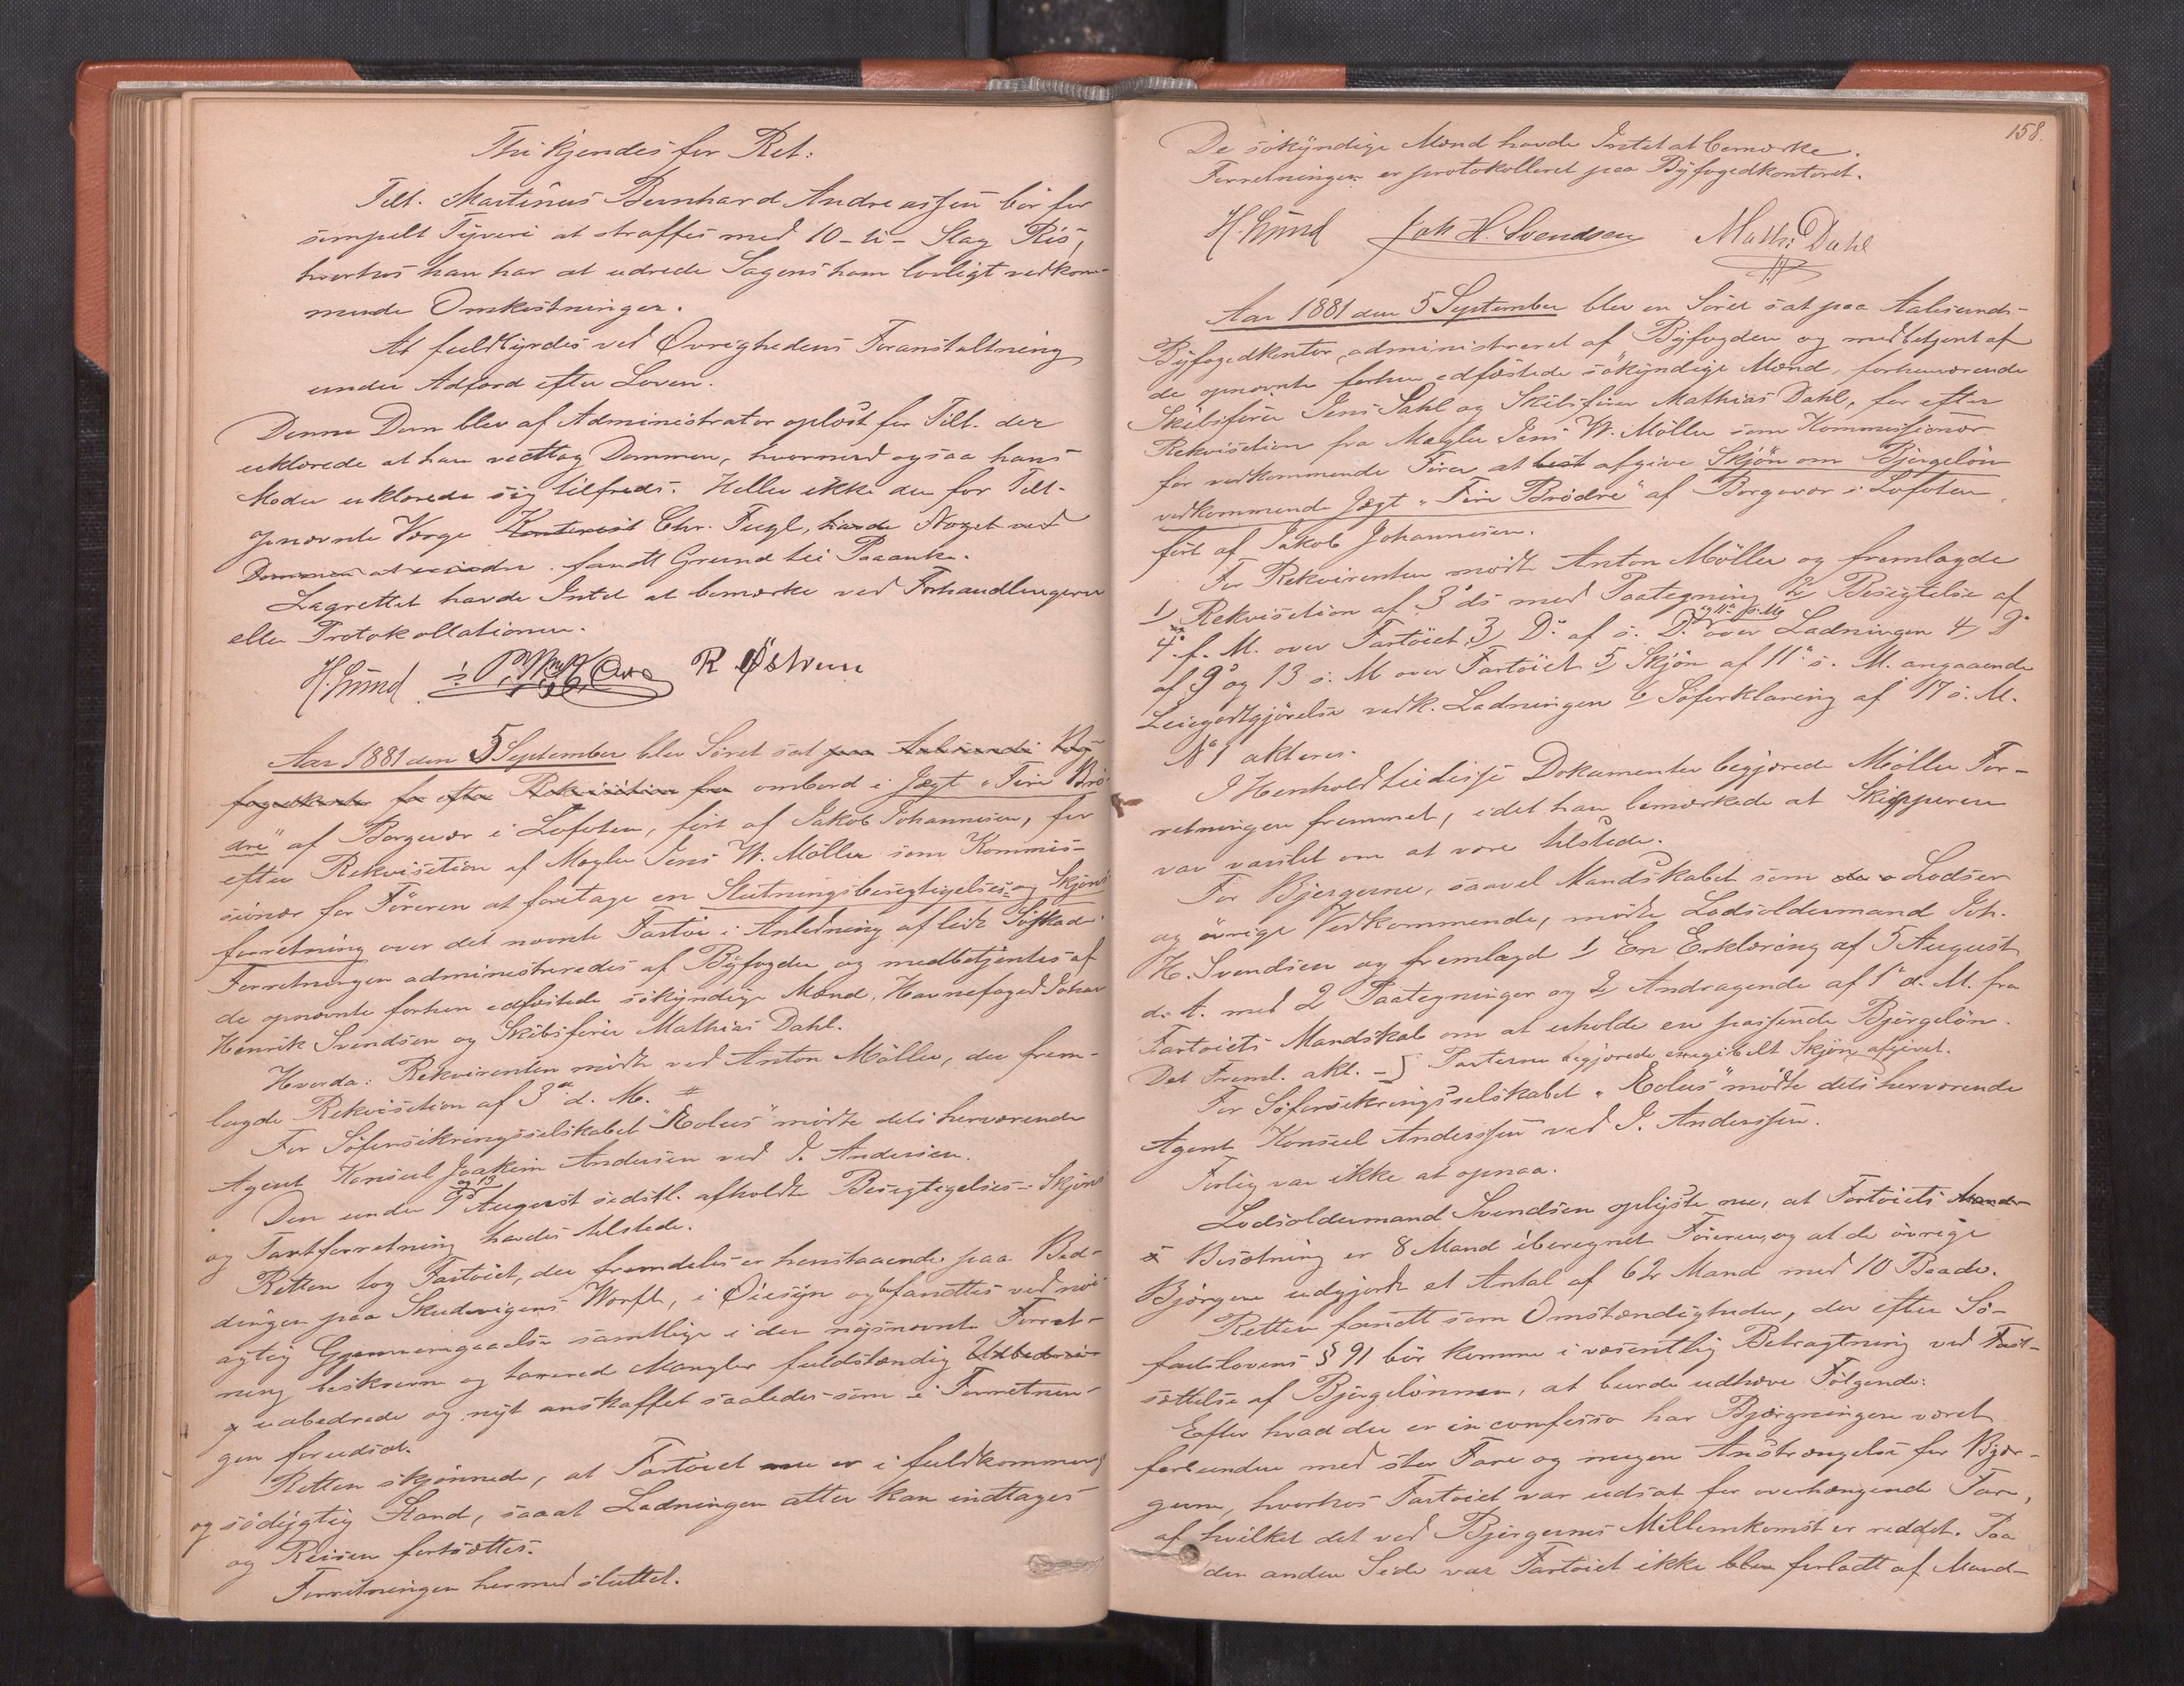 Thi kjendes for Ret:
Tilt. Martinus Bernhard Andreassen bör for
simpelt Tyveri at straffes med 10 - ti - Slag Ris,
hvorhos han har at udrede Sagens ham lovligt vedkom-
mende Omkostninger.
At fuldbyrdes ved Øvrighedens Foranstaltning
under Adfærd efter Loven.
Denne Dom blev af Administrator oplæst for Tilt. der
erklærede at han vedtog Dommen, hvormed ogsaa hans
Moder erklærede sig tilfreds. Heller ikke den for Tilt.
opnævnte Værge Kontorist Chr. Fugl, havde Noget ved
Dommen at erindre. fandt Grund til Paaanke.
Lagrettet havde Intet at bemærke ved Forhandlingerne
eller Protokollationen.
H. Lund R Østrem
Aar 1881 den 5 September blev Söret sat paa Aalesunds By-
fogedkontor for efter Rekvisition fra ombord i Jægt "Fire Brö-
dre" af Borgevær i Lofoten, fört af Jakob Johannesen, for
efter Rekvisition af Mægler Jens W. Möller som Kommis-
sionær for Föreren at foretage en Slutningsbesigtigelses- og Skjöns
forretning over det nævnte Fartöi i Anledning af lidt Söskade.
Forretningen administreredes af Byfogden og medbetjentes af
de opnævnte forhen edfæstede sökyndige Mænd, Havnefoged Johan
Henrik Svendsen og Skibsförer Mathias Dahl.
Hvorda: Rekvirenten mödte ved Anton Möller, der frem-
lagde Rekvisition af 3die d. M. #
For Söforsikringsselskabet "Æolus" mödte dets herværende
Agent Konsul Joakim Andersen ved J. Andersen.
og 13
Den under 9de August sidstl. afholdte Besigtigelses- Skjöns
og Taxtforretning havdes tilstede.
Retten tog Fartöiet, der fremdeles er henstaaende paa Bed-
dingen paa Skudevigens Værft, i Öiesyn og befandtes ved nöi-
agtig Gjennemgaaelse samtlige i den nysnævnte Forret-
ning beskrevne og taxerede Mangler fuldstændig Udbedrede
og udbedrede og nyt anskaffet saaledes som i Forretnin-
gen forudsat.
Retten skjönnede, at Fartöiet nu er i fuldkommen
og södygtig Stand, saaat Ladningen atter kan indtages
og Reisen fortsættes.
Forretningen hermed sluttet.
158.
De sökyndige Mænd havde Intet at bemærke.
Forretningen er protokolleret paa Byfogedkontoret.
H. Lund Joh H. Svendsen Maths Dahl
Aar 1881 den 5 September blev en Söret sat paa Aalesunds
Byfogedkontor, administreret af Byfogden og medbetjent af
de opnævnte forhen edfæstede sökyndige Mænd, forhenværende
Skibsförer Jens Dahl og Skibsförer Mathias Dahl, for efter
Rekvisition fra Mægler Jens W. Möller som Kommissionær
for vedkommende Förer at afgive Skjön om Bjergelön
vedkommende Jægt "Fire Brödre" af Borgevær i Lofoten,
fört af Jakob Johannesen.
For Rekvirenten mödte Anton Möller og fremlagde
1) Rekvisition af 3 ds med Paategning 2) Besigtelse af
og 11te s. M.
4de f. M. over Fartöiet 3) Do af s. D. over Ladningen 4) Do
af 9de og 13 s. M over Fartöiet 5) Skjön af 11te s. M. angaaende
Leiegodtgjörelse vedk. Ladningen 6) Söforklaring af 17 s. M.
No 1 akteres.
I Henhold til disse Dokumenter begjærede Möller For-
retningen fremmet, idet han bemærkede at Skipperen
var varslet om at være tilstede.
For Bjergerne, saavel Mandskabet som Lodser
og övrige Vedkommende, mödte Lodsoldermand Joh.
H. Svendsen og fremlagd 1) En Erklæring af 5 August
d. A. med 2 Paategninger og 2) Andragende af 1ste d. M. fra
Fartöiets Mandskab om at erholde en passende Bjergelön.
Det Freml. akt. - Parterne begjærede exegibelt Skjön afgivet.
For Söforsikringsselskabet "Æolus" mödte dets herværende
Agent Konsul Anderssen ved J. Anderssen.
Forlig var ikke at opnaa.
Lodsoldermand Svendsen oplyste nu, at Fartöiets Mand-
Besætning er 8 Mand iberegnet Föreren, og at de övrige
Bjergere udgjorde et Antal af 62 Mand med 10 Baade.
Retten fandt som Omstændigheder, der efter Sö-
fartslovens § 91 bör komme i væsentlig Betragtning ved Fast-
sættelse af Bjergelönnen, at burde udhæve Fölgende:
Efter hvad der er in confesso har Bjergningen været
forbunden med stor Fare og megen Anstrængelse for Bjer-
gerne, hvorhos Fartöiet var udsat for overhængende Fare,
af hvilket det ved Bjergernes Mellemkomst er reddet. Paa
den anden Side var Fartöiet ikke blev forladt af Mand-